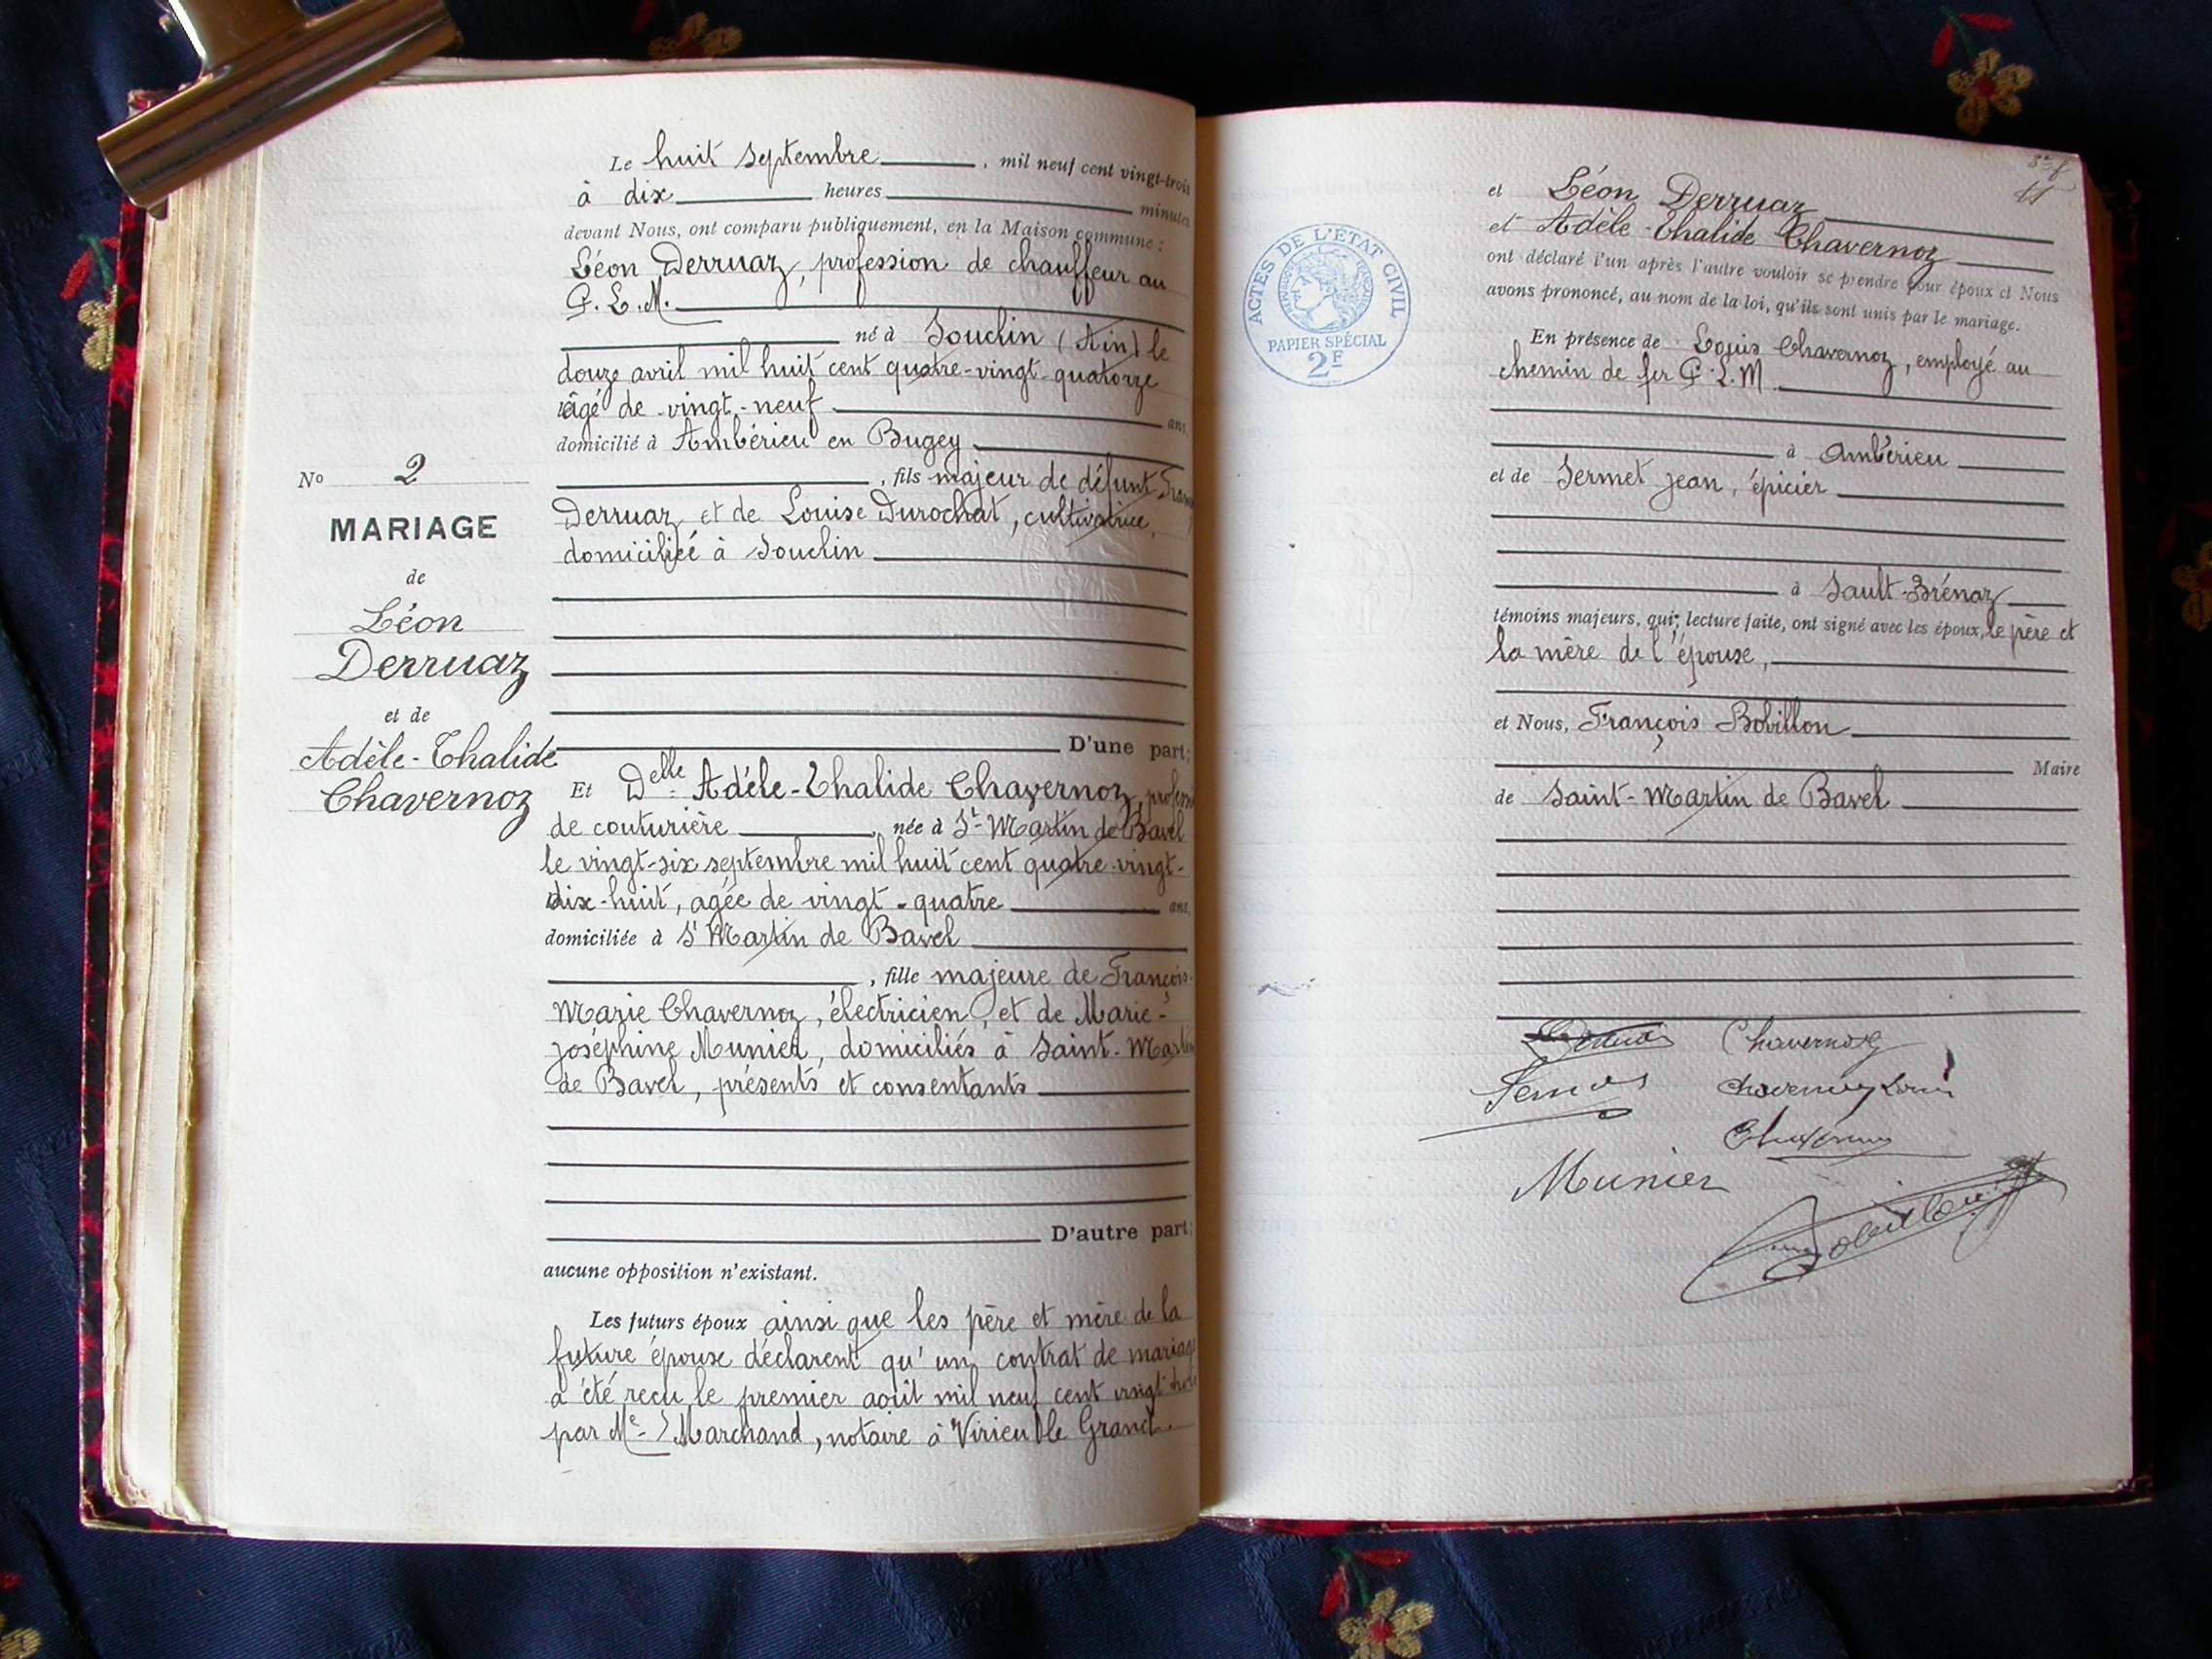 Le huit septembre, mil neuf cent vingt-trois
à dix heures minutes
devant Nous, ont comparu publiquement, en la Maison commune :
Léon Derruaz, profession de chauffeur au
P. L. M.
né à Souclin (Ain) le
douze avril mil huit cent quatre-vingt-quatorze
âgé de vingt-neuf ans,
domicilié à Ambérieu en Bugey
No 2
, fils majeur de défunt
MARIAGE
Derruaz et de Louise Durochat, cultivatrice,
domiciliée à Souclin
de
Léon
Derruaz
et de
Adèle-Thalide
Chavernoz
D'une part;
Et Delle Adèle-Thalide Chavernoz,
de couturière, née à St-Martin de Bavel
le vingt-six septembre mil huit cent quatre-vingt-
dix-huit, agée de vingt-quatre ans,
domiciliée à St Martin de Bavel
, fille majeure de François-
Marie Chavernoz, électricien, et de Marie-
Joséphine Munier, domiciliés à Saint-Martin
de Bavel, présents et consentants
D'autre part;
aucune opposition n'existant.
Les futurs époux ainsi que les père et mère de la
future épouse déclarent qu'un contrat de mariage
a été reçu le premier août mil neuf cent vingt trois
par Me Marchand, notaire à Virieu le Grand.
ACTES DE L'ETAT CIVIL
RÉPUBLIQUE FRANÇAISE
PAPIER SPÉCIAL
2F
et Léon Derruaz
et Adèle-Thalide Chavernoz
ont déclaré l'un après l'autre vouloir se prendre pour époux et Nous
avons prononcé, au nom de la loi, qu'ils sont unis par le mariage.
En présence de Louis Chavernoz, employé au
chemin de fer P.L.M
à Ambérieu
et de Sermet Jean, épicier
à Sault-Brénaz
témoins majeurs, qui, lecture faite, ont signé avec les époux, le père et
la mère de l'épouse,
et Nous, François Bobillon
Maire
de Saint-Martin de Bavel
Chavernoz
Chavernoz Louis
Munier
Bobillon